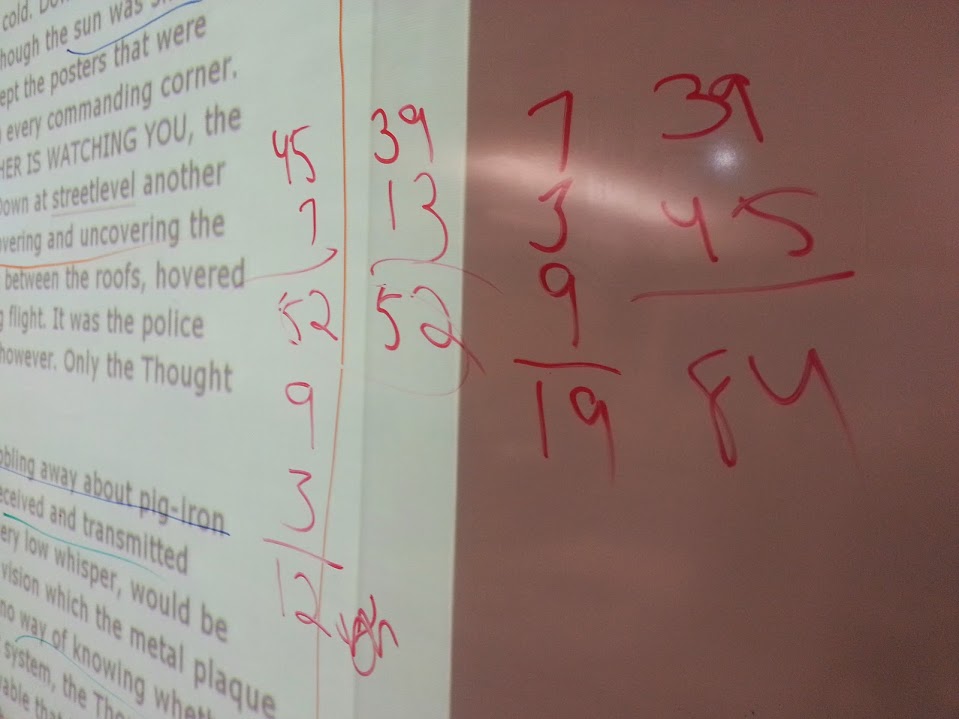 cold.
though the sun was
ept the posters that were
every commanding corner.
HER IS WATCHING YOU, the
Down at streetlevel another
overing and uncovering the
between the roofs, hovered
g flight. It was the police
however. Only the Thought
bbling away about pig-iron
eceived and transmitted
ery low whisper, would be
vision which the metal plaque
no way of knowing wheth
system, the Thou
vable that
45
7
52
9
3
12
39
13
52
7
3
9
19
39
45
84